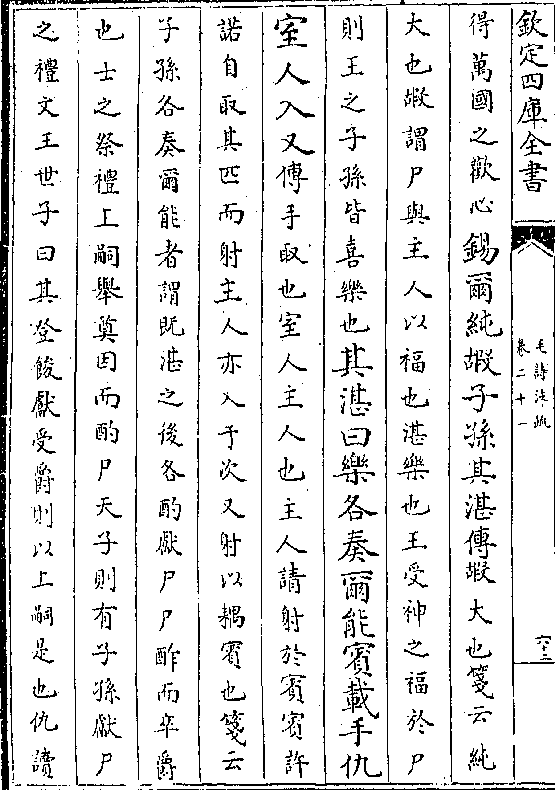 欽定四庫全書
毛詩注疏
卷二十一
六十三
得萬國之歡心錫爾純嘏子孫其湛傳嘏大也箋云純
大也嘏謂尸與主人以福也湛樂也王受神之福於尸
則王之子孫皆喜樂也其湛曰樂各奏爾能賓載手仇
室人入又傳手取也室人主人也主人請射於賓賓許
諾自取其匹而射主人亦入于次又射以耦賓也箋云
子孫各奏爾能者謂既湛之後各酌獻尸尸酢而卒爵
也士之祭禮上嗣舉奠因而酌尸天子則有子孫獻尸
之禮文王世子曰其登餕獻受爵則以上嗣是也仇讀